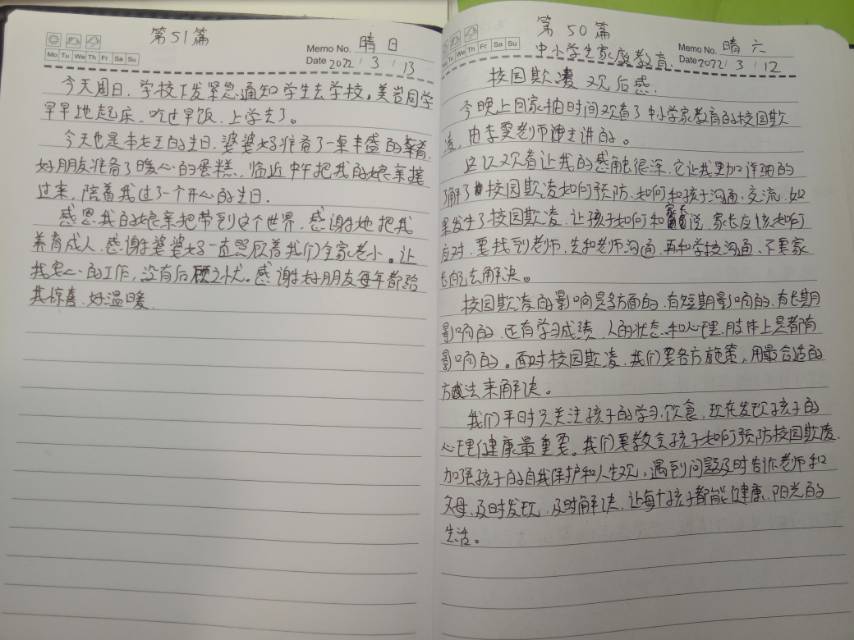 第51篇
Memo No. 晴 日
Mo Tu We Th Fr Sa Su
Date 2022 / 3 / 13
今天周日，学校下发紧急通知学生去学校，美岩同学
早早地起床，吃过早饭，上学去了。
今天也是本老王的生日，婆婆妈准备了一桌丰盛的菜肴，
好朋友准备了暖心的蛋糕，临近中午把我的娘亲接
过来，陪着我过了一个开心的生日。
感恩我的娘亲把带到这个世界，感谢她把我
养育成人，感谢婆婆妈一直照顾着我们全家老小。让
我安心的工作，没有后顾之忧。感谢好朋友每年都给
我惊喜，好温暖
第50篇
中小学生家庭教育
Memo No. 晴 六
Mo Tu We Th Fr Sa Su
Date 2022 / 3 / 12
校园欺凌观后感
今晚上回家抽时间观看了中小学家教育的校园欺
凌，由李雯老师主讲的。
这次观看让我的感触很深，它让我更加详细的
了解了校园欺凌如何预防，如何和孩子沟通，交流，如
果发生了校园欺凌，让孩子如何和家长说，家长应该如何
应对，要找到老师，先和老师沟通，再和学校沟通，不要家
长自己去解决。
校园欺凌的影响是多方面的，有短期影响的，有长期
影响的，还有学习成绩，人的状态和心理，肢体上是都有
影响的。面对校园欺凌，我们要各方施策，用最合适的
方法来解决。
我们平时只关注孩子的学习，饮食，现在发现孩子的
心理健康最重要。我们要教会孩子如何预防校园欺凌，
加强孩子的自我保护和人生观，遇到问题及时告诉老师和
父母，及时发现，及时解决，让每个孩子都能健康、阳光的
生活。